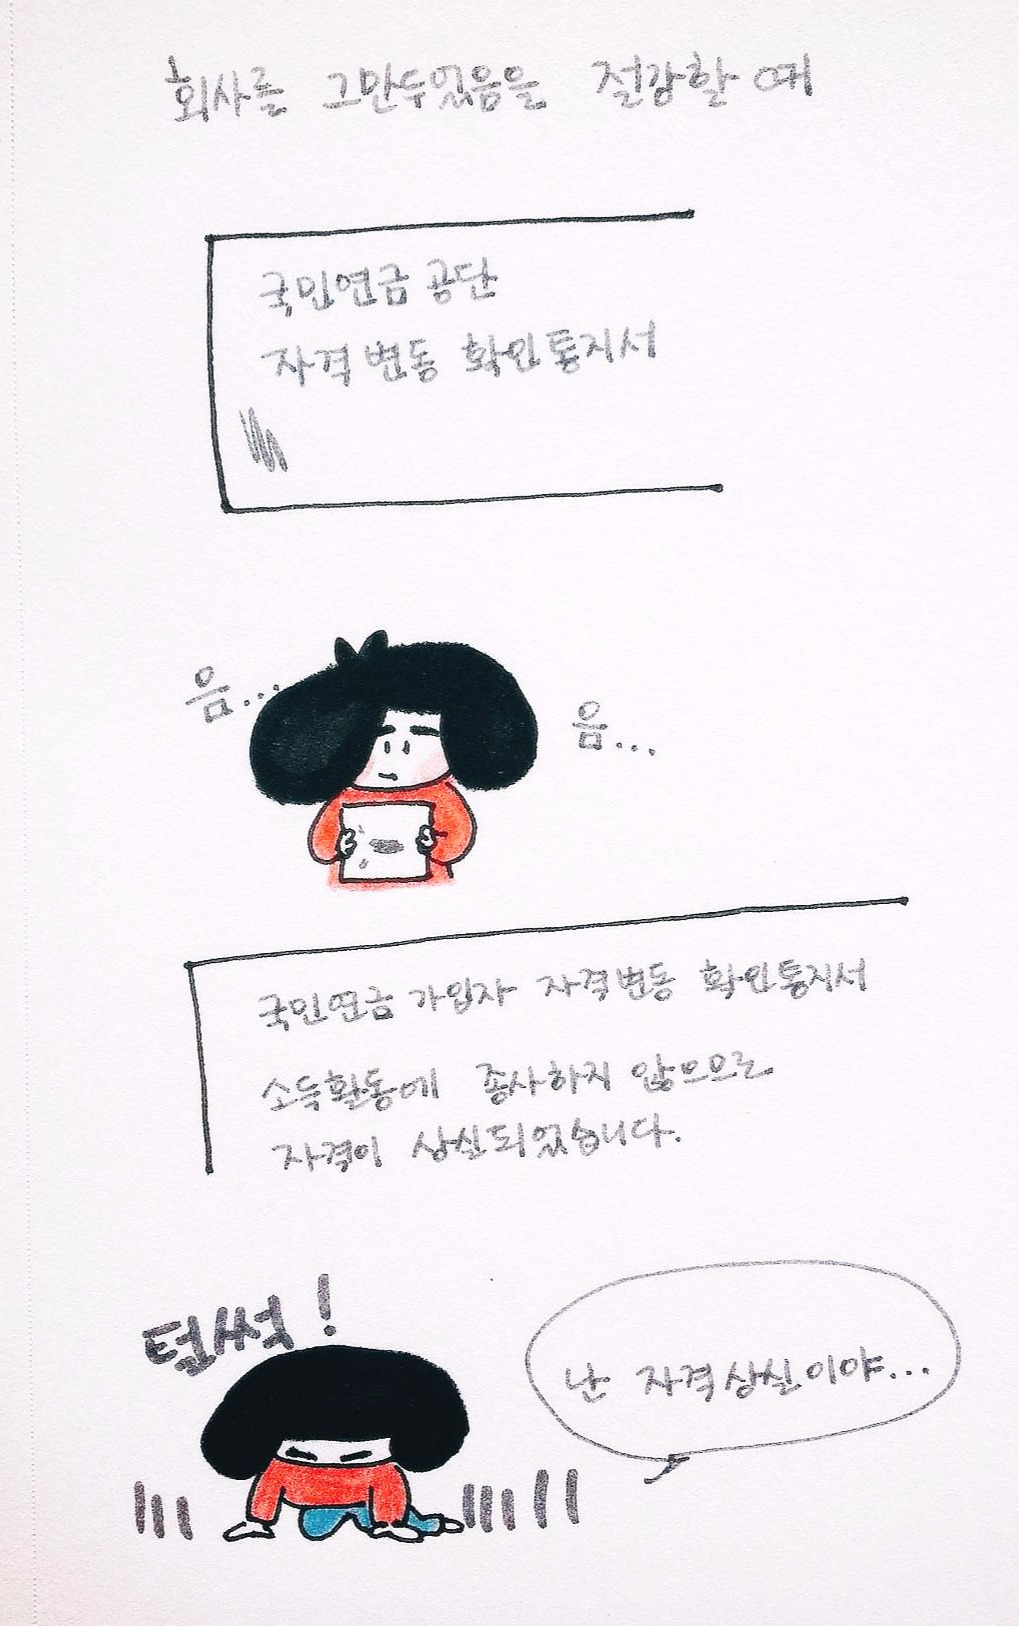 회사를 그만두었음을 절감할 때
국민연금공단
자격변동 확인통지서
음...
음...
국민연금 가입자 자격변동 확인통지서
소득활동에 종사하지 않으므로
자격이 상실되었습니다.
털썩!
난 자격상실이야...